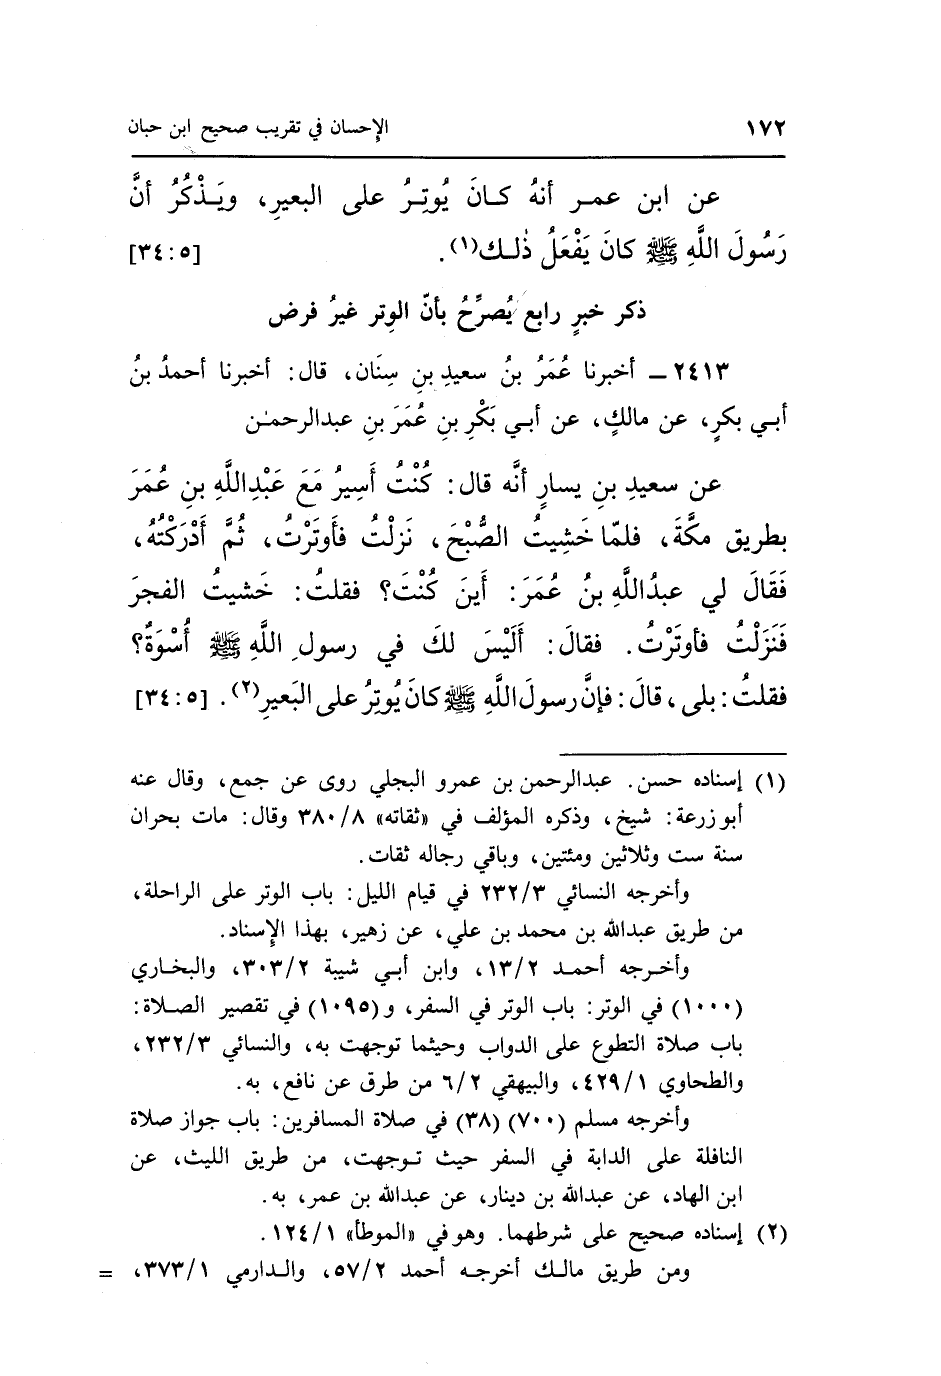 ١٧٢ الإحسان في تقريب صحيح ابن حبان
عن ابن عمـر أنهُ كـانَ يُوتِـرُ على البعيرِ، ويَـذْكُرُ أنَّ
رَسُولَ اللَّهِ ﷺ كانَ يَفْعَلُ ذٰلـك(١). [٥:٣٤]
ذكر خبرٍ رابعٍ يُصرِّحُ بأنّ الوِتر غيرُ فرض
٢٤١٣ ـ أخبرنا عُمَرُ بنُ سعيدِ بنِ سِنَان، قال: أخبرنا أحمدُ بنُ
أبـي بكرٍ، عن مالكٍ، عن أبـي بَكْرِ بنِ عُمَرَ بنِ عبدالرحمٰـن
عن سعيدِ بنِ يسارٍ أنَّه قال: كُنْتُ أَسِيرُ مَعَ عَبْدِاللَّهِ بنِ عُمَرَ
بطريق مكَّةَ، فلمّا خَشِيتُ الصُّبْحَ، نَزلْتُ فأَوتَرْتُ، ثُمَّ أَدْرَكْتُهُ،
فَقَالَ لي عبدُاللَّهِ بنُ عُمَرَ: أَينَ كُنْتَ؟ فقلتُ: خَشيتُ الفجرَ
فَنَزَلْتُ فأوتَرْتُ. فقالَ: أَلَيْسَ لكَ في رسولِ اللَّهِ ﷺ أُسْوَةٌ؟
فقلتُ: بلى، قالَ: فإنَّ رسولَ اللَّهِ ﷺ كانَ يُوتِرُ على البَعيرِ(٢). [٥:٣٤]
(١) إسناده حسن. عبدالرحمن بن عمرو البجلي روى عن جمع، وقال عنه
أبو زرعة: شيخ، وذكره المؤلف في «ثقاته» ٣٨٠/٨ وقال: مات بحران
سنة ست وثلاثين ومئتين، وباقي رجاله ثقات.
وأخرجه النسائي ٢٣٢/٣ في قيام الليل: باب الوتر على الراحلة،
من طريق عبدالله بن محمد بن علي، عن زهير، بهذا الإسناد.
وأخـرجه أحمـد ١٣/٢، وابن أبـي شيبة ٣٠٣/٢، والبخـاري
(١٠٠٠) في الوتر: باب الوتر في السفر، و(١٠٩٥) في تقصير الصـلاة:
باب صلاة التطوع على الدواب وحيثما توجهت به، والنسائي ٢٣٢/٣،
والطحاوي ٤٢٩/١، والبيهقي ٦/٢ من طرق عن نافع، به.
وأخرجه مسلم (٧٠٠) (٣٨) في صلاة المسافرين: باب جواز صلاة
النافلة على الدابة في السفر حيث تـوجهت، من طريق الليث، عن
ابن الهاد، عن عبدالله بن دينار، عن عبدالله بن عمر، به.
(٢) إسناده صحيح على شرطهما. وهو في «الموطأ» ١٢٤/١.
ومن طريق مالـك أخرجـه أحمد ٥٧/٢، والـدارمي ٣٧٣/١، =